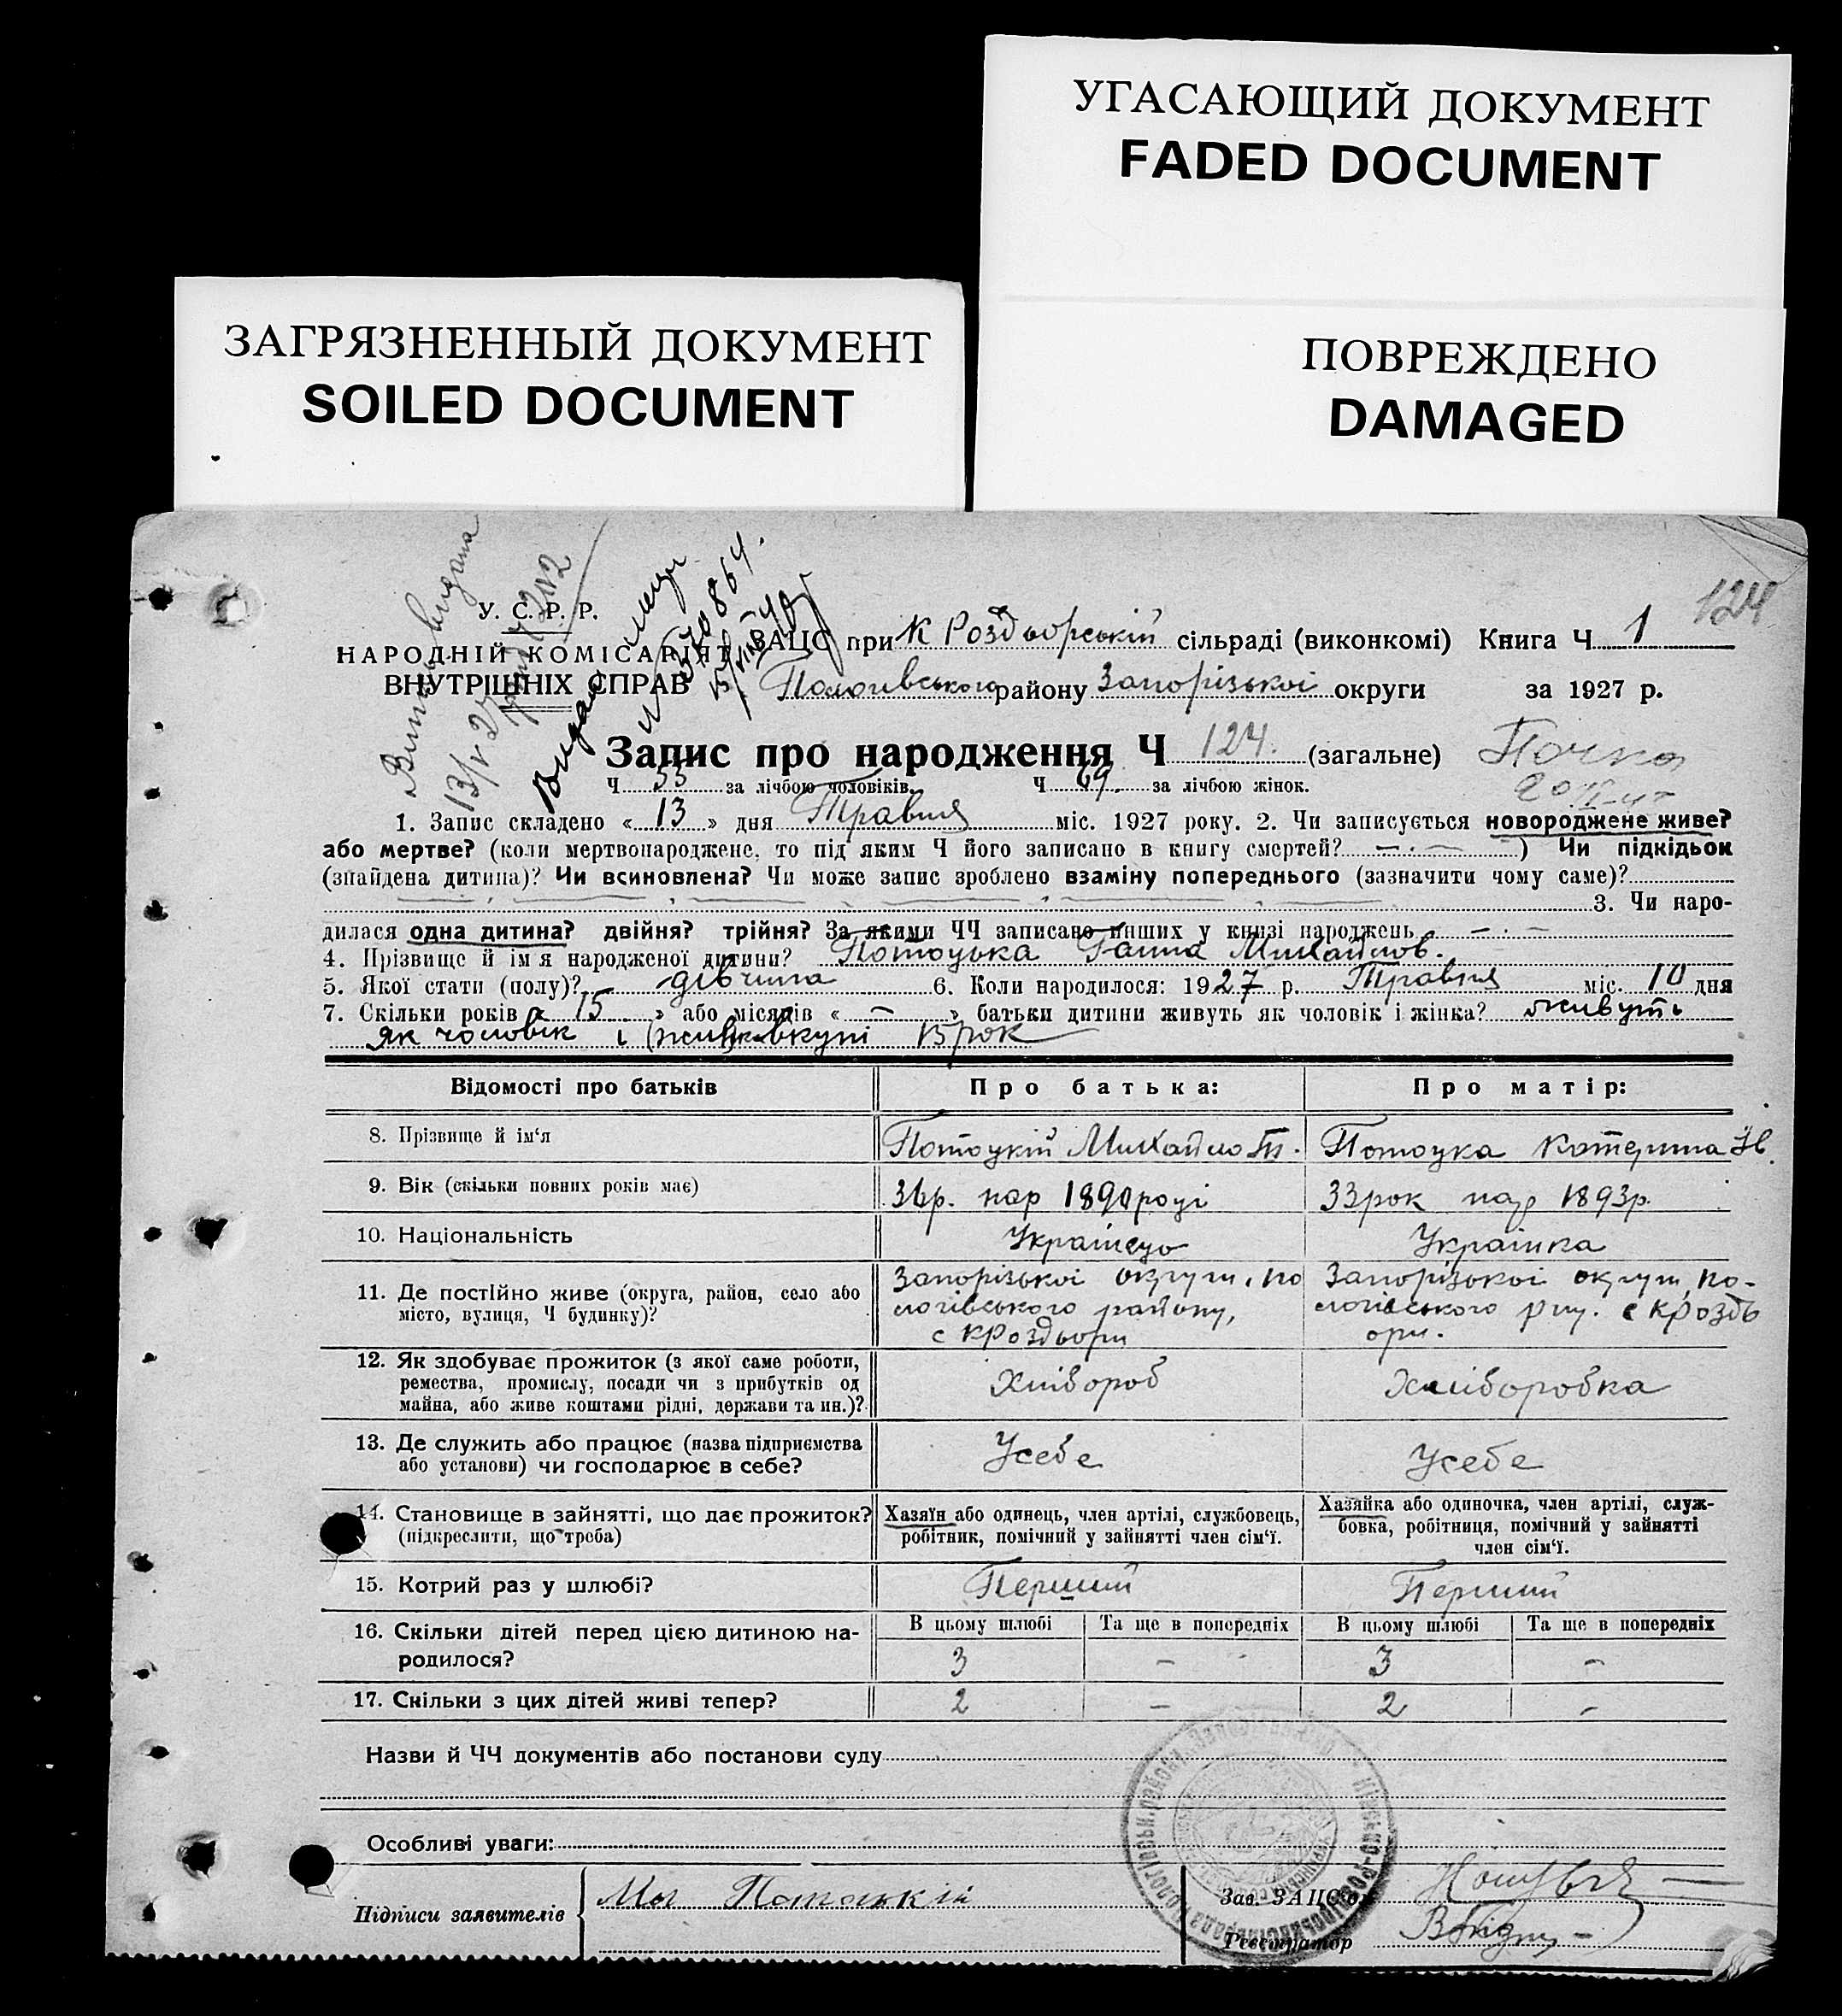 УГАСАЮЩИЙ ДОКУМЕНТ
FADED DOCUMENT
ЗАГРЯЗНЕННЫЙ ДОКУМЕНТ
SOILED DOCUMENT
ПОВРЕЖДЕНО
DAMAGED
124
У. С. Р. Р.
НАРОДНІЙ КОМІСАРІЯТ
ВНУТРІШНІХ СПРАВ
Витяг видана
13/V 27
Видан
ЗАЦС при К Роздорській сільраді (виконкомі) Книга Ч 1
Пологивського району Запорізької округи за 1927 р.
Запис про народження Ч 124. (загальне)
Ч 55 за лічбою чоловіків. Ч 69. за лічбою жінок.
1. Запис складено « 13 » дня Травня міс. 1927 року. 2. Чи записується новороджене живе?
або мертве? (коли мертвонароджене, то під яким Ч його записано в книгу смертей? — · — ) Чи підкідьок
(знайдена дитина)? Чи всиновлена? Чи може запис зроблено взаміну попереднього (зазначити чому саме)?
3. Чи наро-
дилася одна дитина? двійня? трійня? За якими ЧЧ записано инших у книзі народжень — · —
4. Прізвище й ім'я народженої дитини? Потоцька Ганна Михайлов.
5. Якої стати (полу)? дівчина 6. Коли народилося: 1927 р. Травня міс. 10 дня
7. Скільки років « 15 » або місяців « — » батьки дитини живуть як чоловік і жінка? живуть
як чоловік і жінка вкупі 15 рок
Відомості про батьків Про батька: Про матір:
8. Прізвище й ім'я Потоцкій Михайло Потоцка Катерина
9. Вік (скільки повних років має) 36р. нар 1890 році 33 рок нар 1893р.
10. Національність Українець Українка
11. Де постійно живе (округа, район, село або місто, вулиця, Ч будинку)?
Запорізької округи, по
логівського району,
с Кроздори
Запорізької округи, по-
логівського с Кроздо
ори.
12. Як здобуває прожиток (з якої саме роботи,
ремества, промислу, посади чи з прибутків од
майна, або живе коштами рідні, держави та ин.)?
Хлібороб Хліборобка
13. Де служить або працює (назва підприємства
або установи) чи господарює в себе?
Усебе Усебе
14. Становище в зайнятті, що дає прожиток?
(підкреслити, що треба)
Хазяїн або одинець, член артілі, службовець,
робітник, помічний у зайнятті член сім'ї.
Хазяйка або одиночка, член артілі, служ-
бовка, робітниця, помічний у зайнятті
член сім'ї.
15. Котрий раз у шлюбі? Перший Перший
16. Скільки дітей перед цією дитиною на-
родилося?
В цьому шлюбі Та ще в попередніх В цьому шлюбі Та ще в попередніх
3 — 3 —
17. Скільки з цих дітей живі тепер? 2 — 2 -
Назви й ЧЧ документів або постанови суду
Особливі уваги:
Підписи заявителів
Потоцькій
Зав. ЗАЦСом
Реєстратор